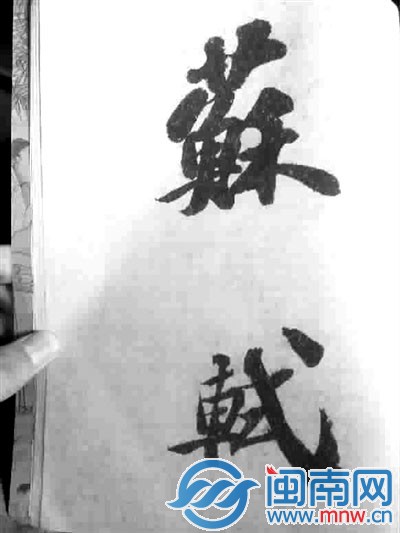 蘇
軾
闽南网
www.mnw.cn